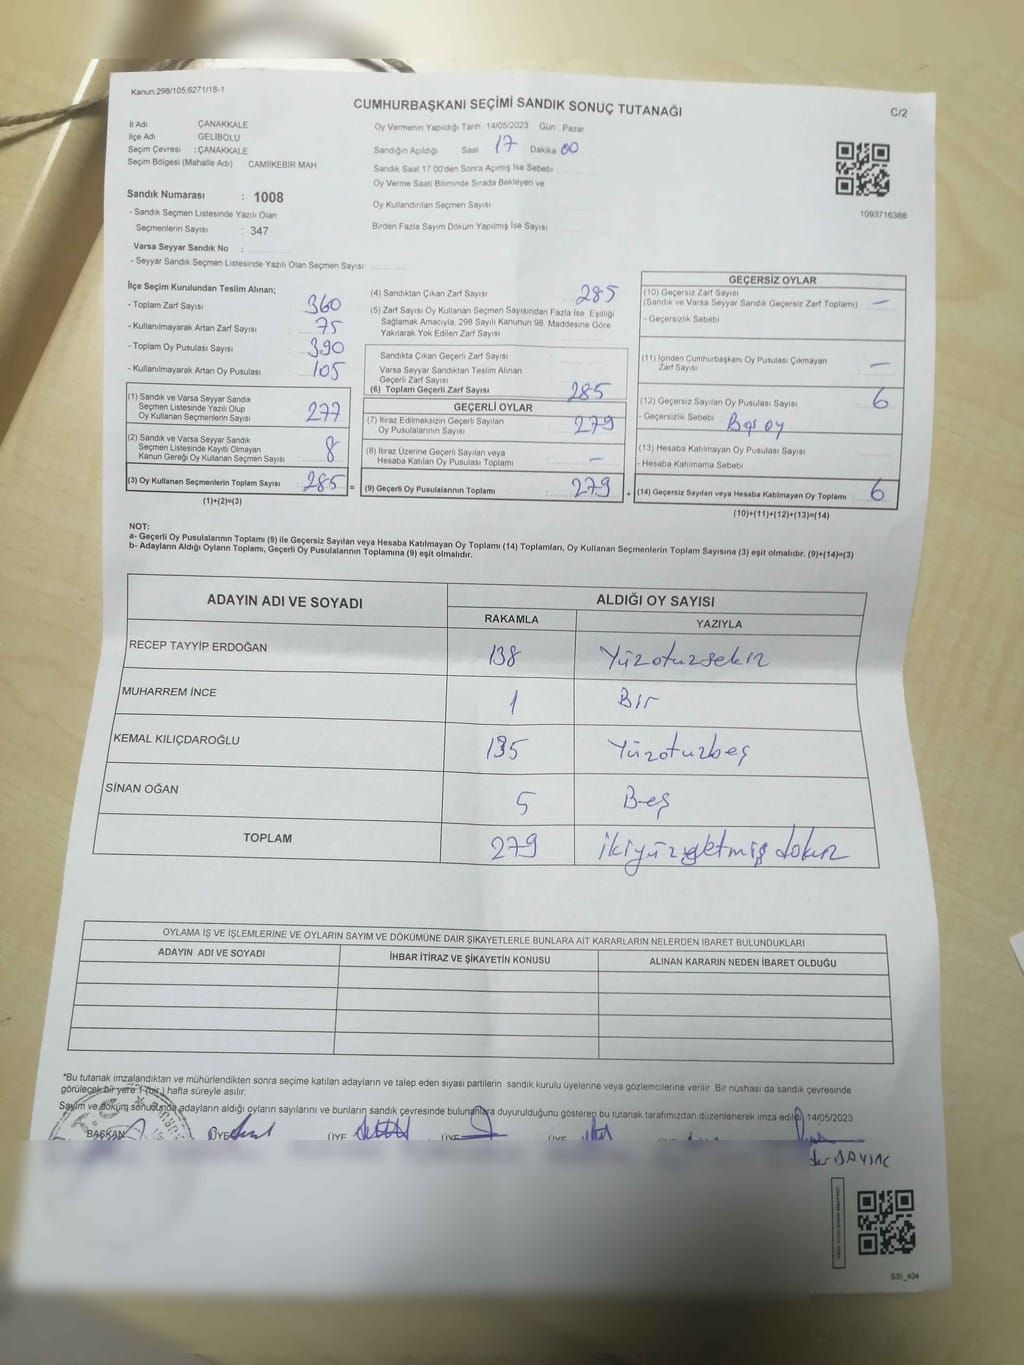 Kanun:298/105:6271/18-1
CUMHURBAŞKANI SEÇİMİ SANDIK SONUÇ TUTANAĞI
C/2
İl Adı : ÇANAKKALE
İlçe Adı : GELİBOLU
Seçim Çevresi : ÇANAKKALE
Seçim Bölgesi (Mahalle Adı) CAMİİKEBİR MAH
Oy Vermenin Yapıldığı Tarih :14/05/2023 Gün Pazar
Sandığın Açıldığı Saat 17 Dakika 00
Sandık Saat 17:00'den Sonra Açımış İse Sebebi
Oy Verme Saati Bitiminde Sırada Bekleyen ve
Oy Kullandırılan Seçmen Sayısı
Birden Fazla Sayım Döküm Yapılmış İse Sayısı
1093716388
Sandık Numarası : 1008
- Sandık Seçmen Listesinde Yazılı Olan
Seçmenlerin Sayısı : 347
Varsa Seyyar Sandık No :
- Seyyar Sandık Seçmen Listesinde Yazılı Olan Seçmen Sayısı
İlçe Seçim Kurulundan Teslim Alınan;
- Toplam Zarf Sayısı 360
- Kullanılmayarak Artan Zarf Sayısı 75
- Toplam Oy Pusulası Sayısı 390
- Kullanılmayarak Artan Oy Pusulası 105
(1) Sandık ve Varsa Seyyar Sandık
Seçmen Listesinde Yazılı Olup
Oy Kullanan Seçmenlerin Sayısı 277
(2) Sandık ve Varsa Seyyar Sandık
Seçmen Listesinde Kayıtlı Olmayan
Kanun Gereği Oy Kullanan Seçmen Sayısı 8
(3) Oy Kullanan Seçmenlerin Toplam Sayısı 285 =
(1)+(2)=(3)
(4) Sandıktan Çıkan Zarf Sayısı 285
(5) Zarf Sayısı Oy Kullanan Seçmen Sayısından Fazla İse, Eşitliği
Sağlamak Amacıyla, 298 Sayılı Kanunun 98. Maddesine Göre
Yakılarak Yok Edilen Zarf Sayısı
Sandıkta Çıkan Geçerli Zarf Sayısı
Varsa Seyyar Sandıktan Teslim Alınan
Geçerli Zarf Sayısı
(6) Toplam Geçerli Zarf Sayısı 285
GEÇERLİ OYLAR
(7) İtiraz Edilmeksizin Geçerli Sayılan
Oy Pusulalarının Sayısı 279
(8) İtiraz Üzerine Geçerli Sayılan veya
Hesaba Katılan Oy Pusulası Toplamı –
(9) Geçerli Oy Pusulalarının Toplamı 279 +
GEÇERSİZ OYLAR
(10) Geçersiz Zarf Sayısı
(Sandık ve Varsa Seyyar Sandık Geçersiz Zarf Toplamı) –
- Geçersizlik Sebebi
(11) İçinden Cumhurbaşkanı Oy Pusulası Çıkmayan
Zarf Sayısı –
(12) Geçersiz Sayılan Oy Pusulası Sayısı 6
- Geçersizlik Sebebi Boş oy
(13) Hesaba Katılmayan Oy Pusulası Sayısı
- Hesaba Katılmama Sebebi
(14) Geçersiz Sayılan veya Hesaba Katılmayan Oy Toplamı 6
(10)+(11)+(12)+(13)=(14)
NOT:
a- Geçerli Oy Pusulalarının Toplamı (9) ile Geçersiz Sayılan veya Hesaba Katılmayan Oy Toplamı (14) Toplamları, Oy Kullanan Seçmenlerin Toplam Sayısına (3) eşit olmalıdır. (9)+(14)=(3)
b- Adayların Aldığı Oyların Toplamı, Geçerli Oy Pusulalarının Toplamına (9) eşit olmalıdır.
ADAYIN ADI VE SOYADI
ALDIĞI OY SAYISI
RAKAMLA YAZIYLA
RECEP TAYYİP ERDOĞAN 138 Yüzotuzsekiz
MUHARREM İNCE 1 Bir
KEMAL KILIÇDAROĞLU 135 Yüzotuzbeş
SİNAN OĞAN 5 Beş
TOPLAM 279 ikiyüzyetmiş dokuz
OYLAMA İŞ VE İŞLEMLERİNE VE OYLARIN SAYIM VE DÖKÜMÜNE DAİR ŞİKAYETLERLE BUNLARA AİT KARARLARIN NELERDEN İBARET BULUNDUKLARI
ADAYIN ADI VE SOYADI İHBAR İTİRAZ VE ŞİKAYETİN KONUSU ALINAN KARARIN NEDEN İBARET OLDUĞU
*Bu tutanak imzalandıktan ve mühürlendikten sonra seçime katılan adayların ve talep eden siyasi partilerin sandık kurulu üyelerine veya gözlemcilerine verilir. Bir nüshası da sandık çevresinde
görülecek bir yere 1 (bir) hafta süreyle asılır.
Sayım ve döküm sonucunda adayların aldığı oyların sayılarını ve bunların sandık çevresinde bulunanlara duyurulduğunu gösteren bu tutanak tarafımızdan düzenlenerek imza edildi. 14/05/2023
BAŞKAN ÜYE ÜYE ÜYE ÜYE
SSI_404